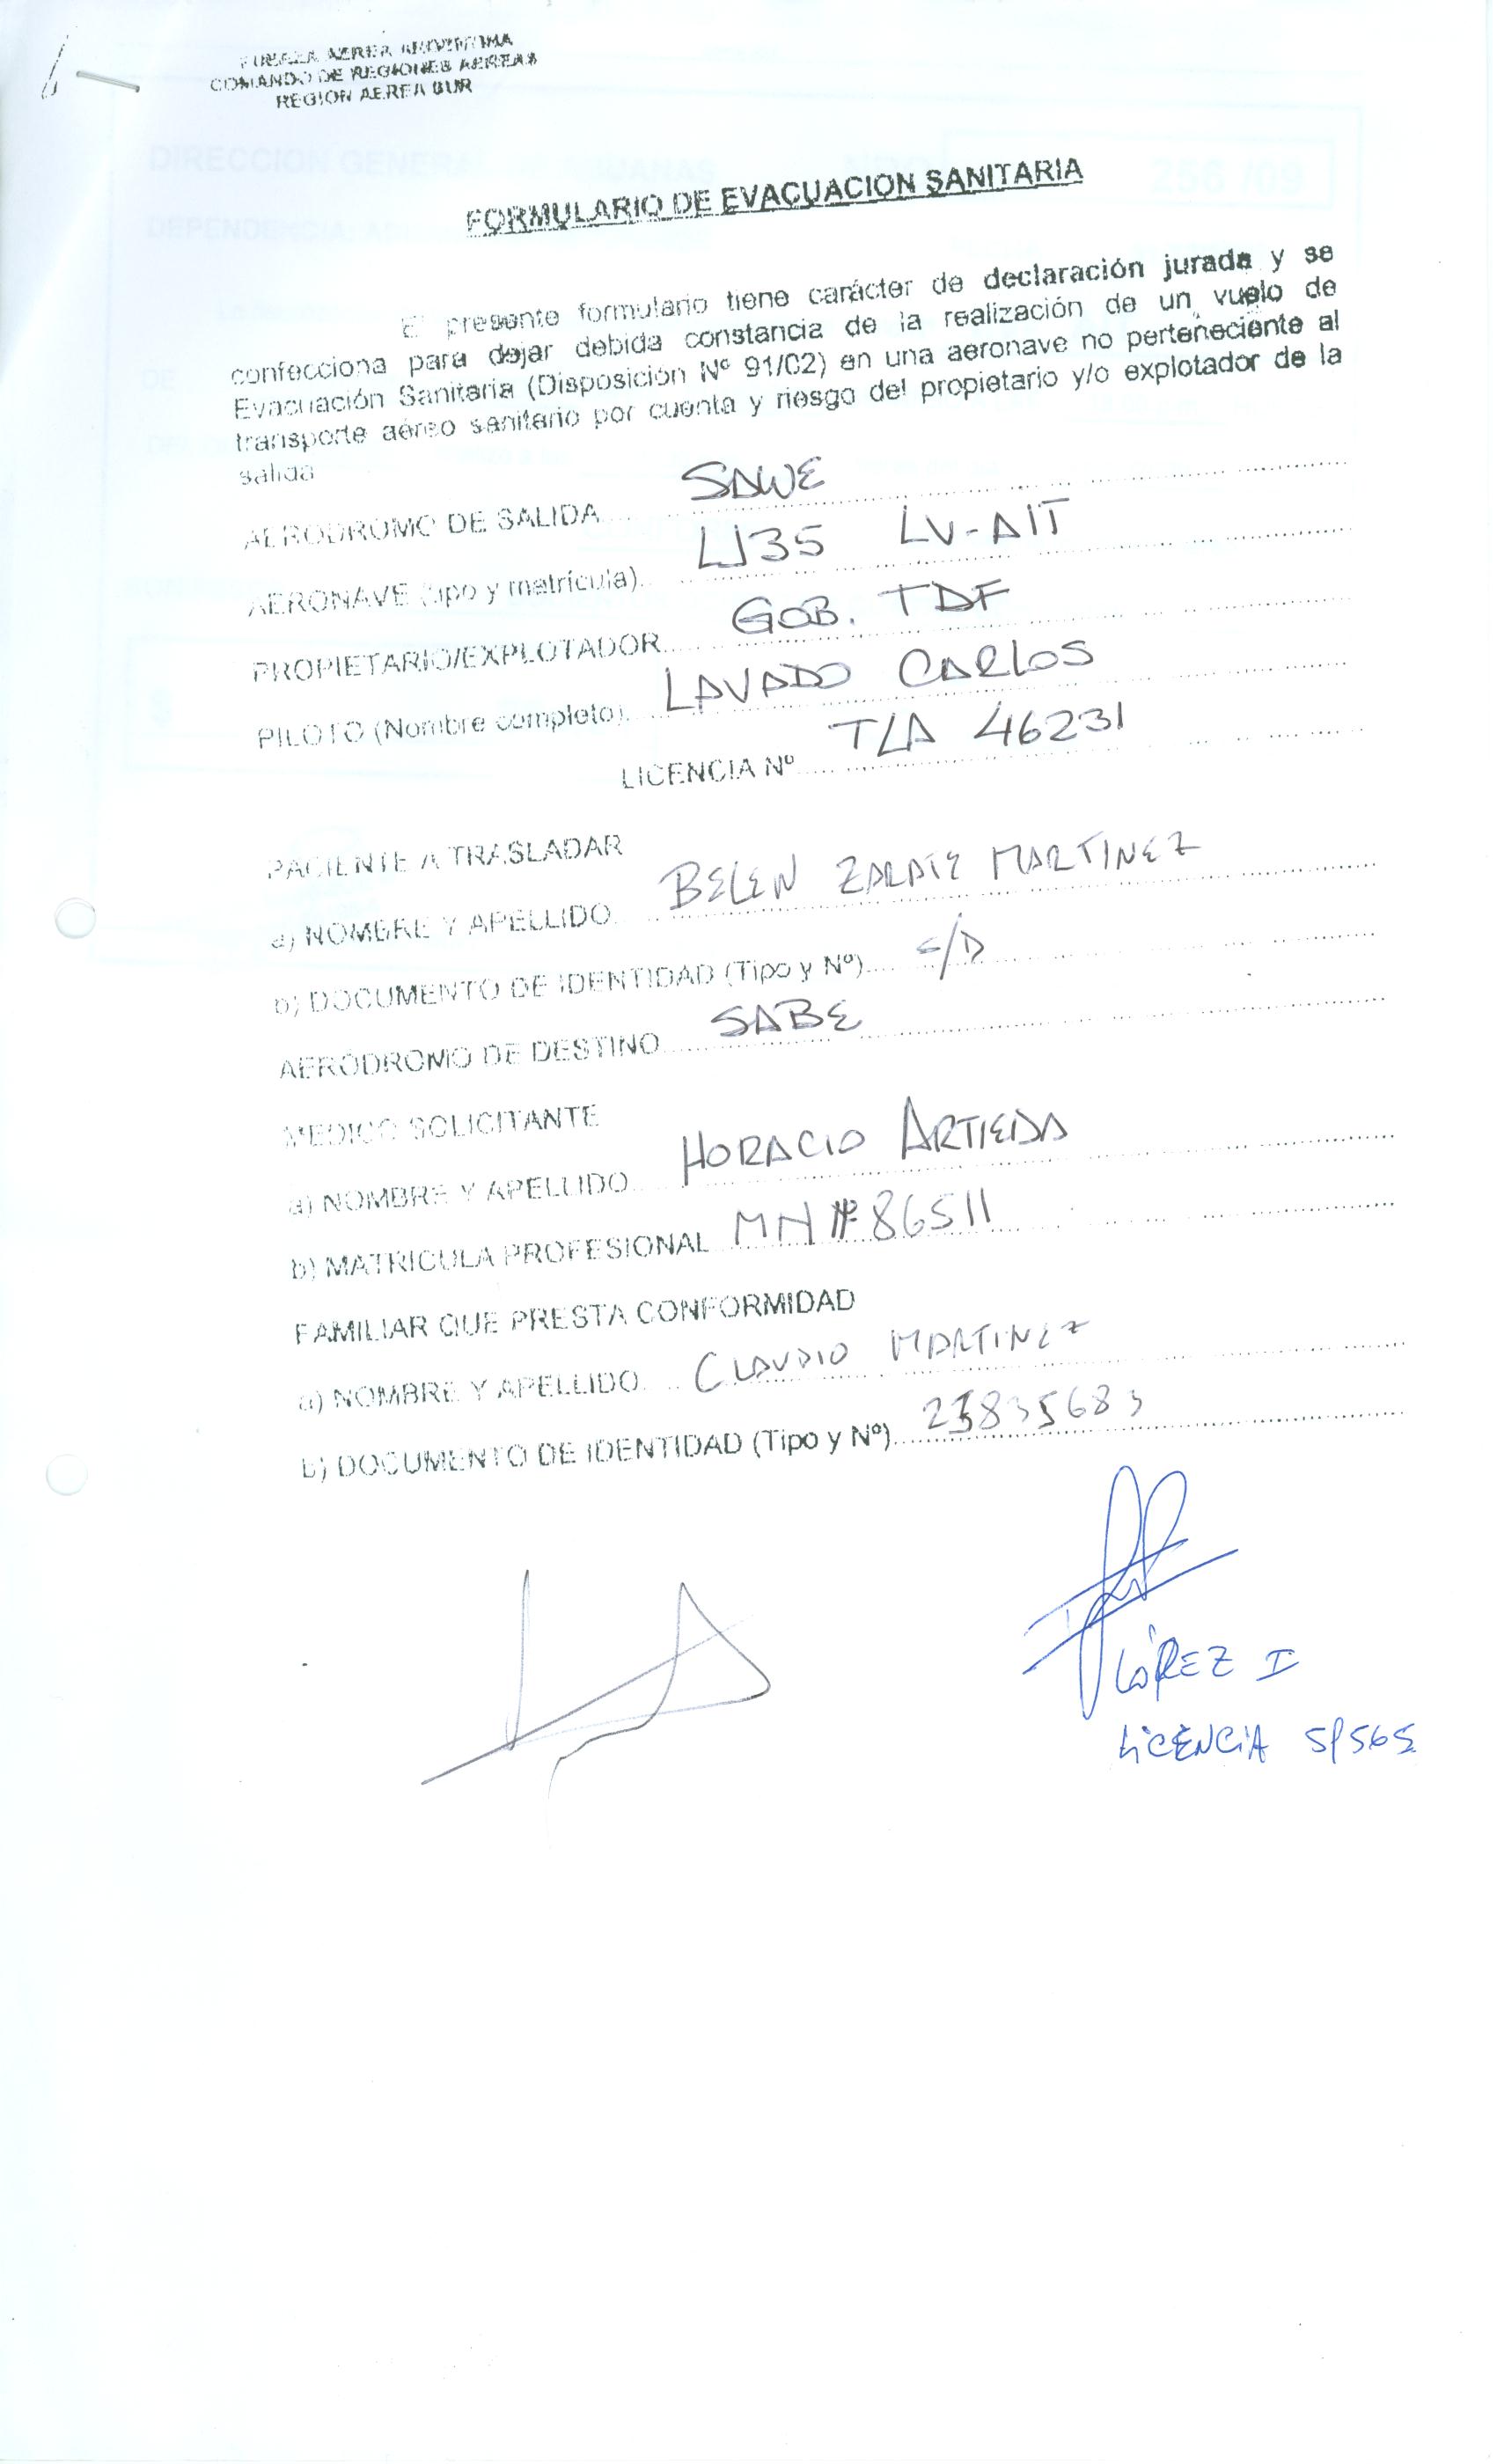 FUERZA AEREA ARGENTINA
COMANDO DE REGIONES AEREAS
REGION AEREA SUR
FORMULARIO DE EVACUACION SANITARIA
El presente formulario tiene carácter de declaración jurada y se
confecciona para dejar debida constancia de la realización de un vuelo de
Evacuación Sanitaria (Disposición Nº 91/02) en una aeronave no perteneciente al
transporte aéreo sanitario por cuenta y riesgo del propietario y/o explotador de la
salida
AERODROMO DE SALIDA SAWE
AERONAVE (tipo y matrícula) LJ35 LV-AIT
PROPIETARIO/EXPLOTADOR GOB. TDF
PILOTO (Nombre completo) LAVADO CARLOS
LICENCIA Nº TLA 46231
PACIENTE A TRASLADAR
a) NOMBRE Y APELLIDO BELEN ZARATE MARTINEZ
b) DOCUMENTO DE IDENTIDAD (Tipo y Nº) S/D
AERODROMO DE DESTINO SABE
MEDICO SOLICITANTE
a) NOMBRE Y APELLIDO HORACIO ARTIEDA
b) MATRICULA PROFESIONAL MN # 86511
FAMILIAR QUE PRESTA CONFORMIDAD
a) NOMBRE Y APELLIDO CLAUDIO MARTINEZ
b) DOCUMENTO DE IDENTIDAD (Tipo y Nº)
LÓPEZ I
LICENCIA
DIRECCION GENERAL DE ADUANAS
256/09